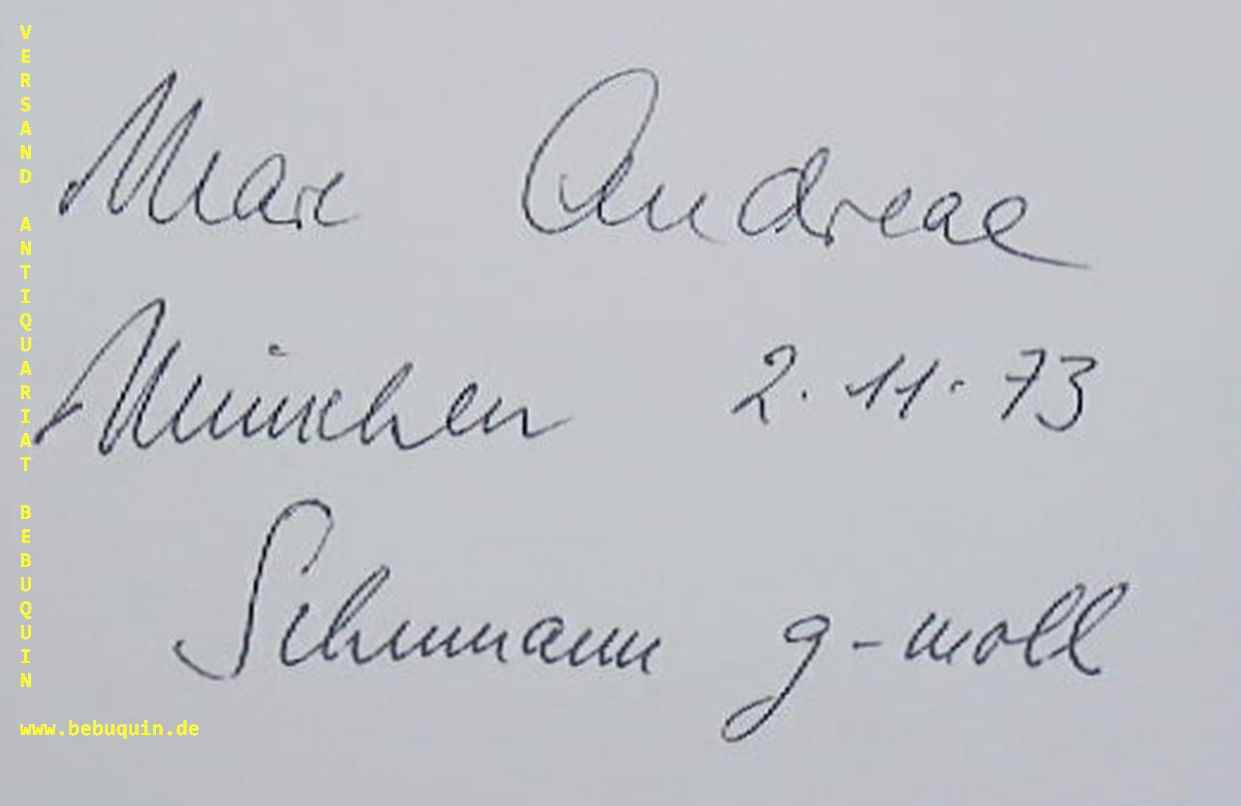 Marc Andreae
München 2. 11. 73
Schumann g-moll
VERSAND ANTIQUARIAT BEBUQUIN
www.bebuquin.de